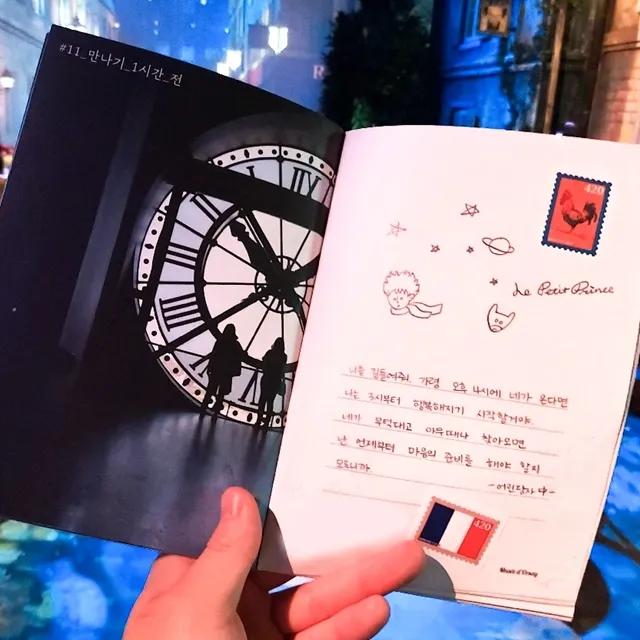 #11_만나기_1시간_전
420
Le Petit Prince
나를 길들여줘. 가령 오후 4시에 네가 온다면
나는 3시부터 행복해지기 시작할거야.
네가 무턱대고 아무때나 찾아오면
난 언제부터 마음의 준비를 해야 할지
모르니까
-어린왕자 中-
420
Musée d'Orsay